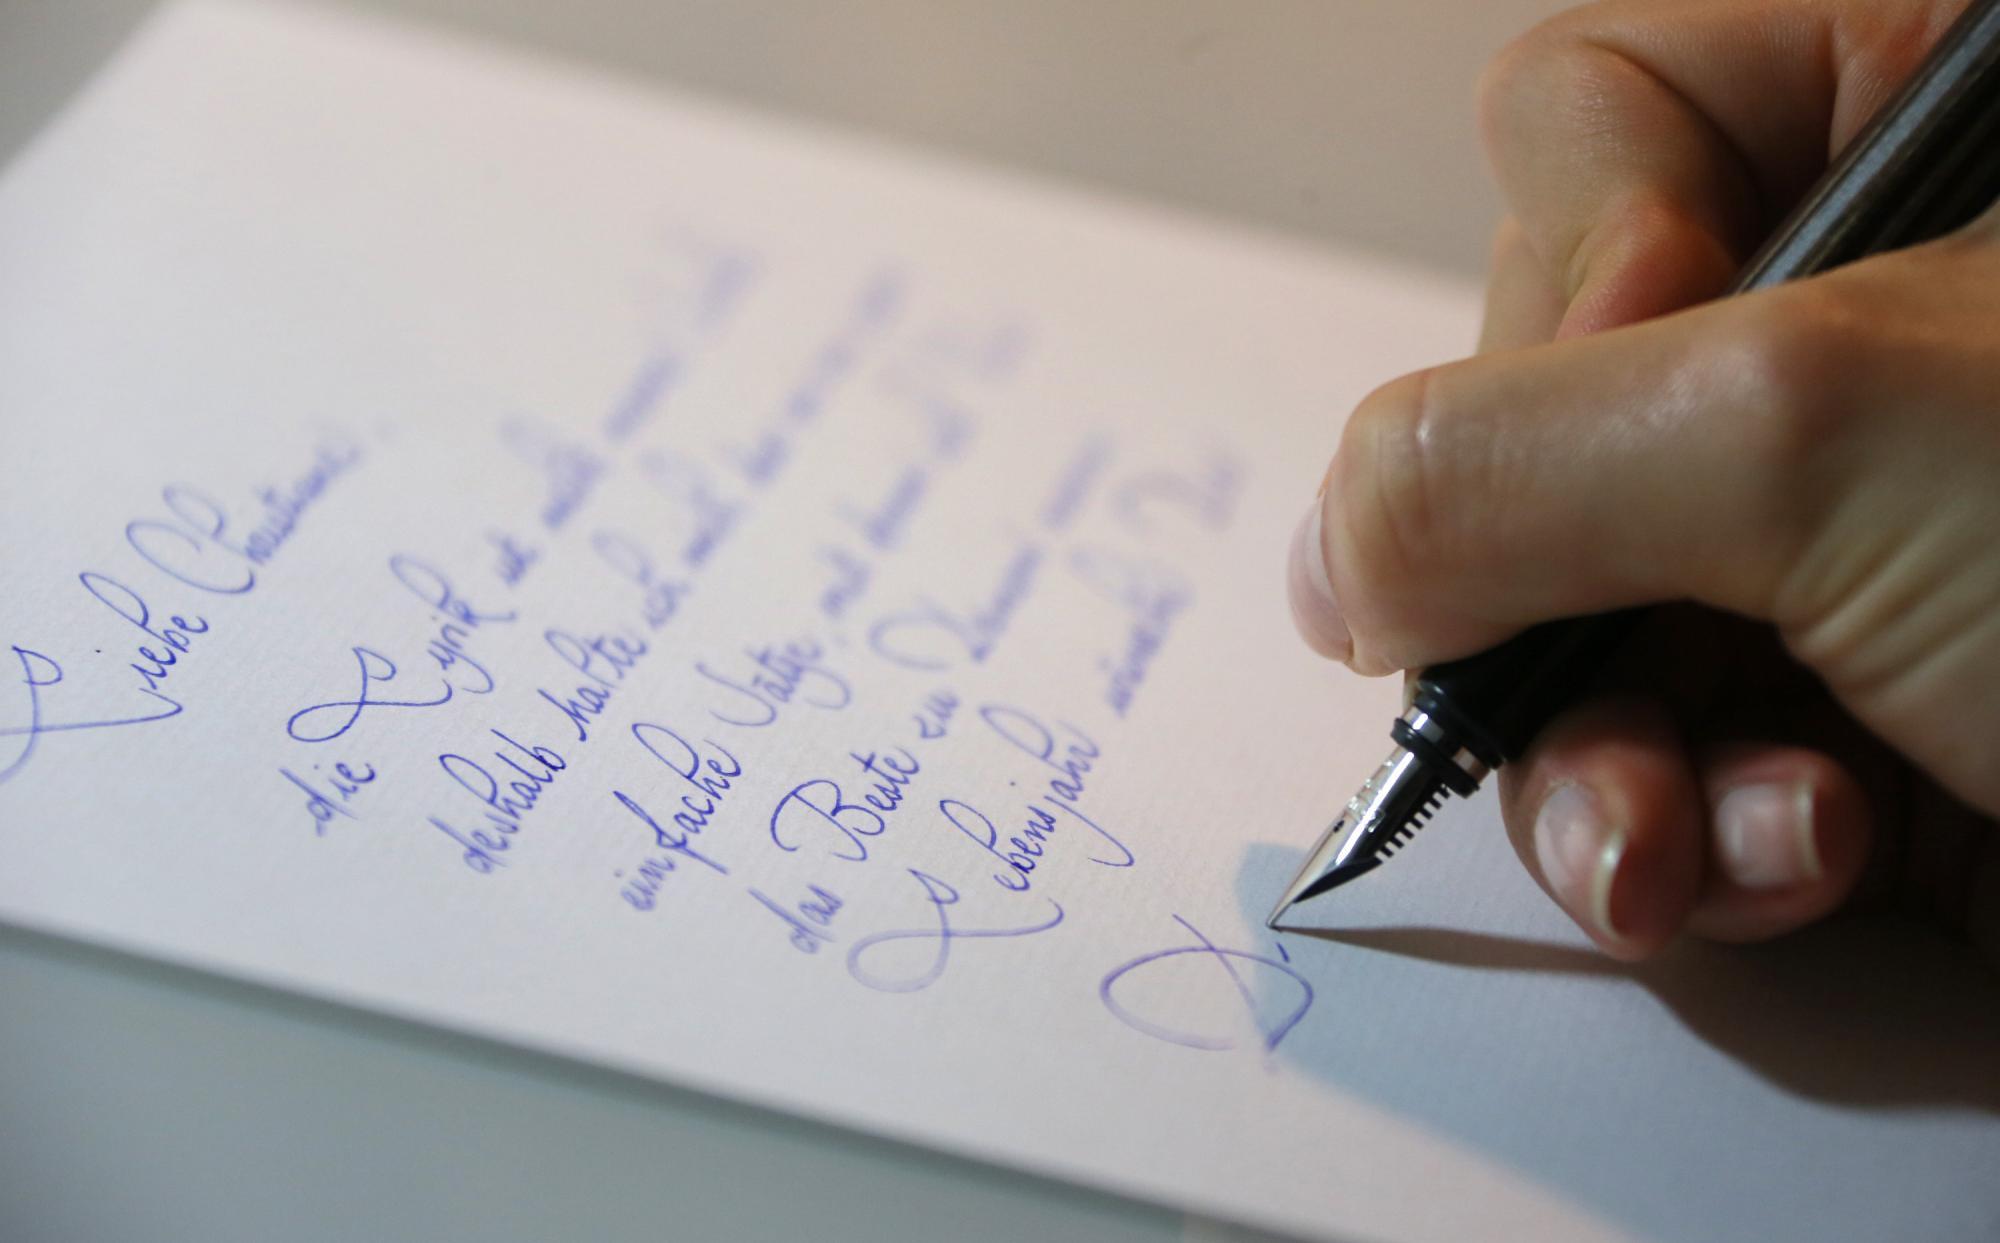 Liebe Christiane,
die Lyrik ist nicht meine
deshalb halte ich mich
einfache Sätze, mit denen ich Dir
das Beste zu Deinem neuen
Lebensjahr wünsche
D